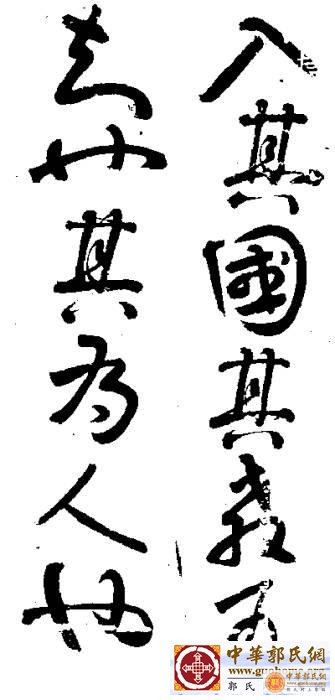 入其國其教可
知也其為人也
中華郭氏網
郭氏